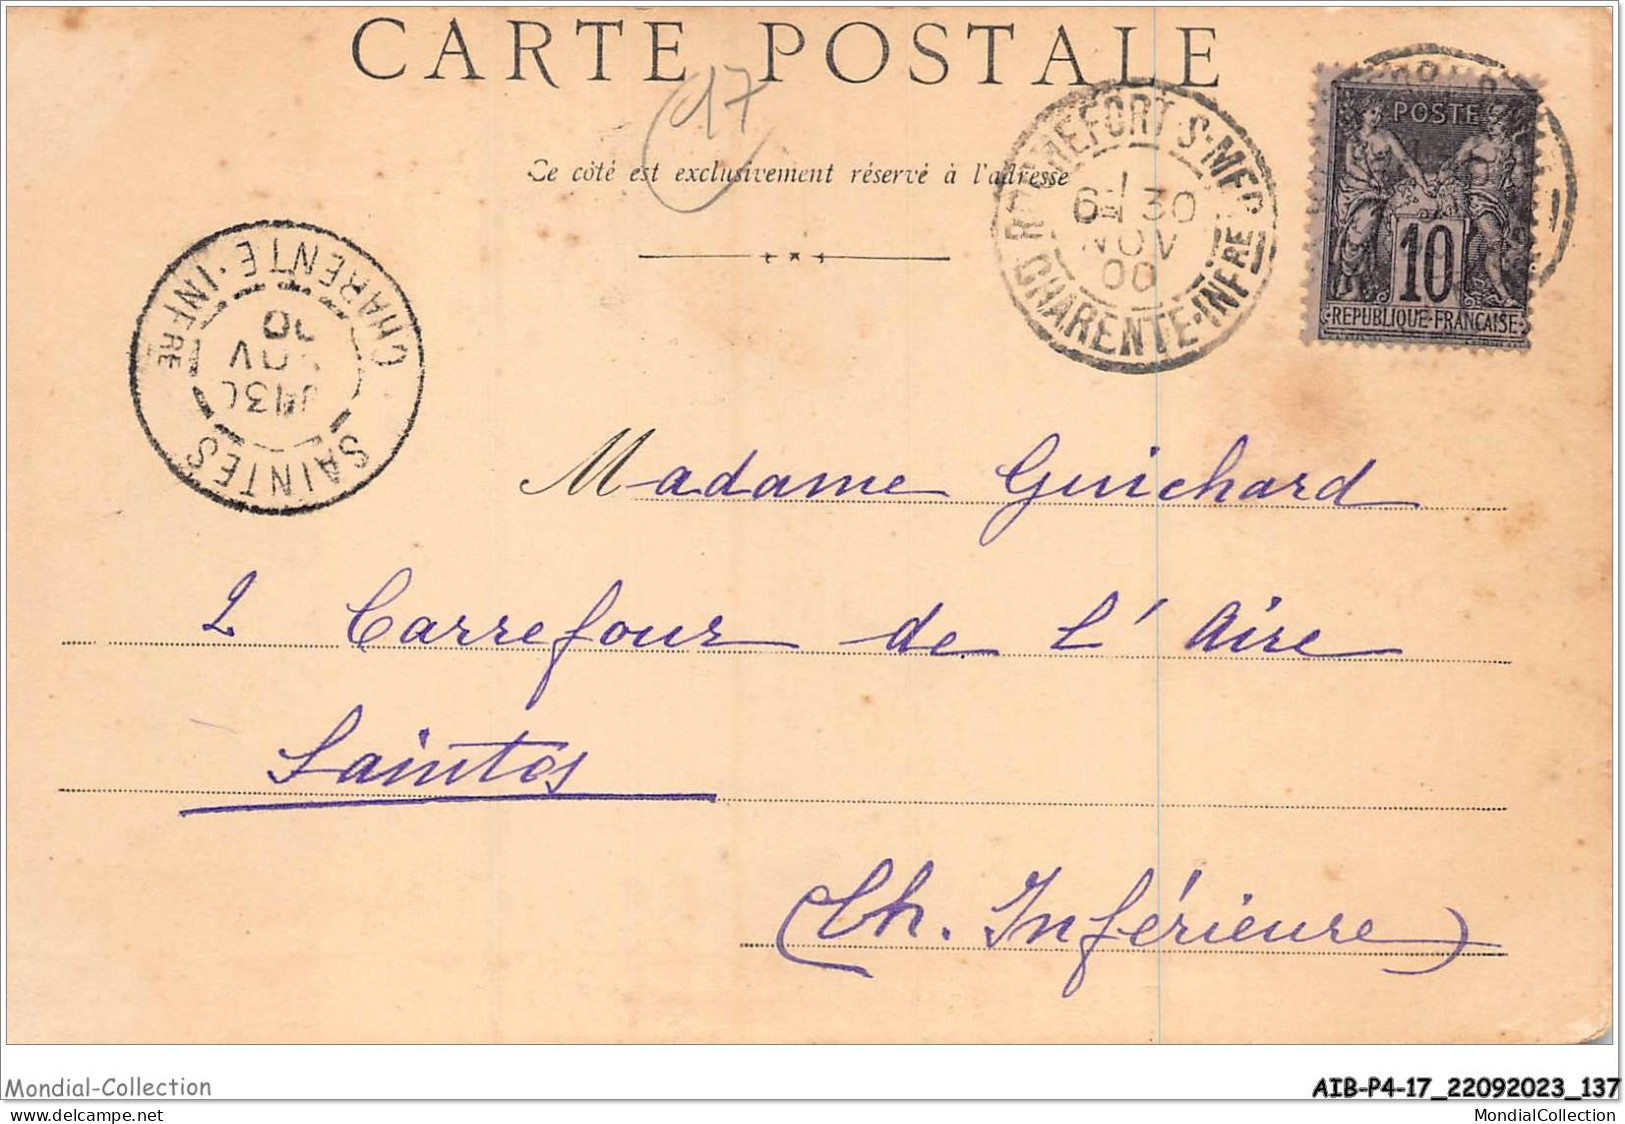 CARTE POSTALE
17
Ce côté est exclusivement réservé à l'adresse
ROCHEFORT-S-MER
6 30
NOV
00
CHARENTE-INFRE
POSTE
10
REPUBLIQUE-FRANCAISE
SAINTES
30
00
CHARENTE-INFRE
Madame Guichard
2 Carrefour de L'Aire
Saintes
(Ch. Inférieure)
Mondial-Collection
AIB-P4-17_22092023_137
www.delcampe.net
MondialCollection